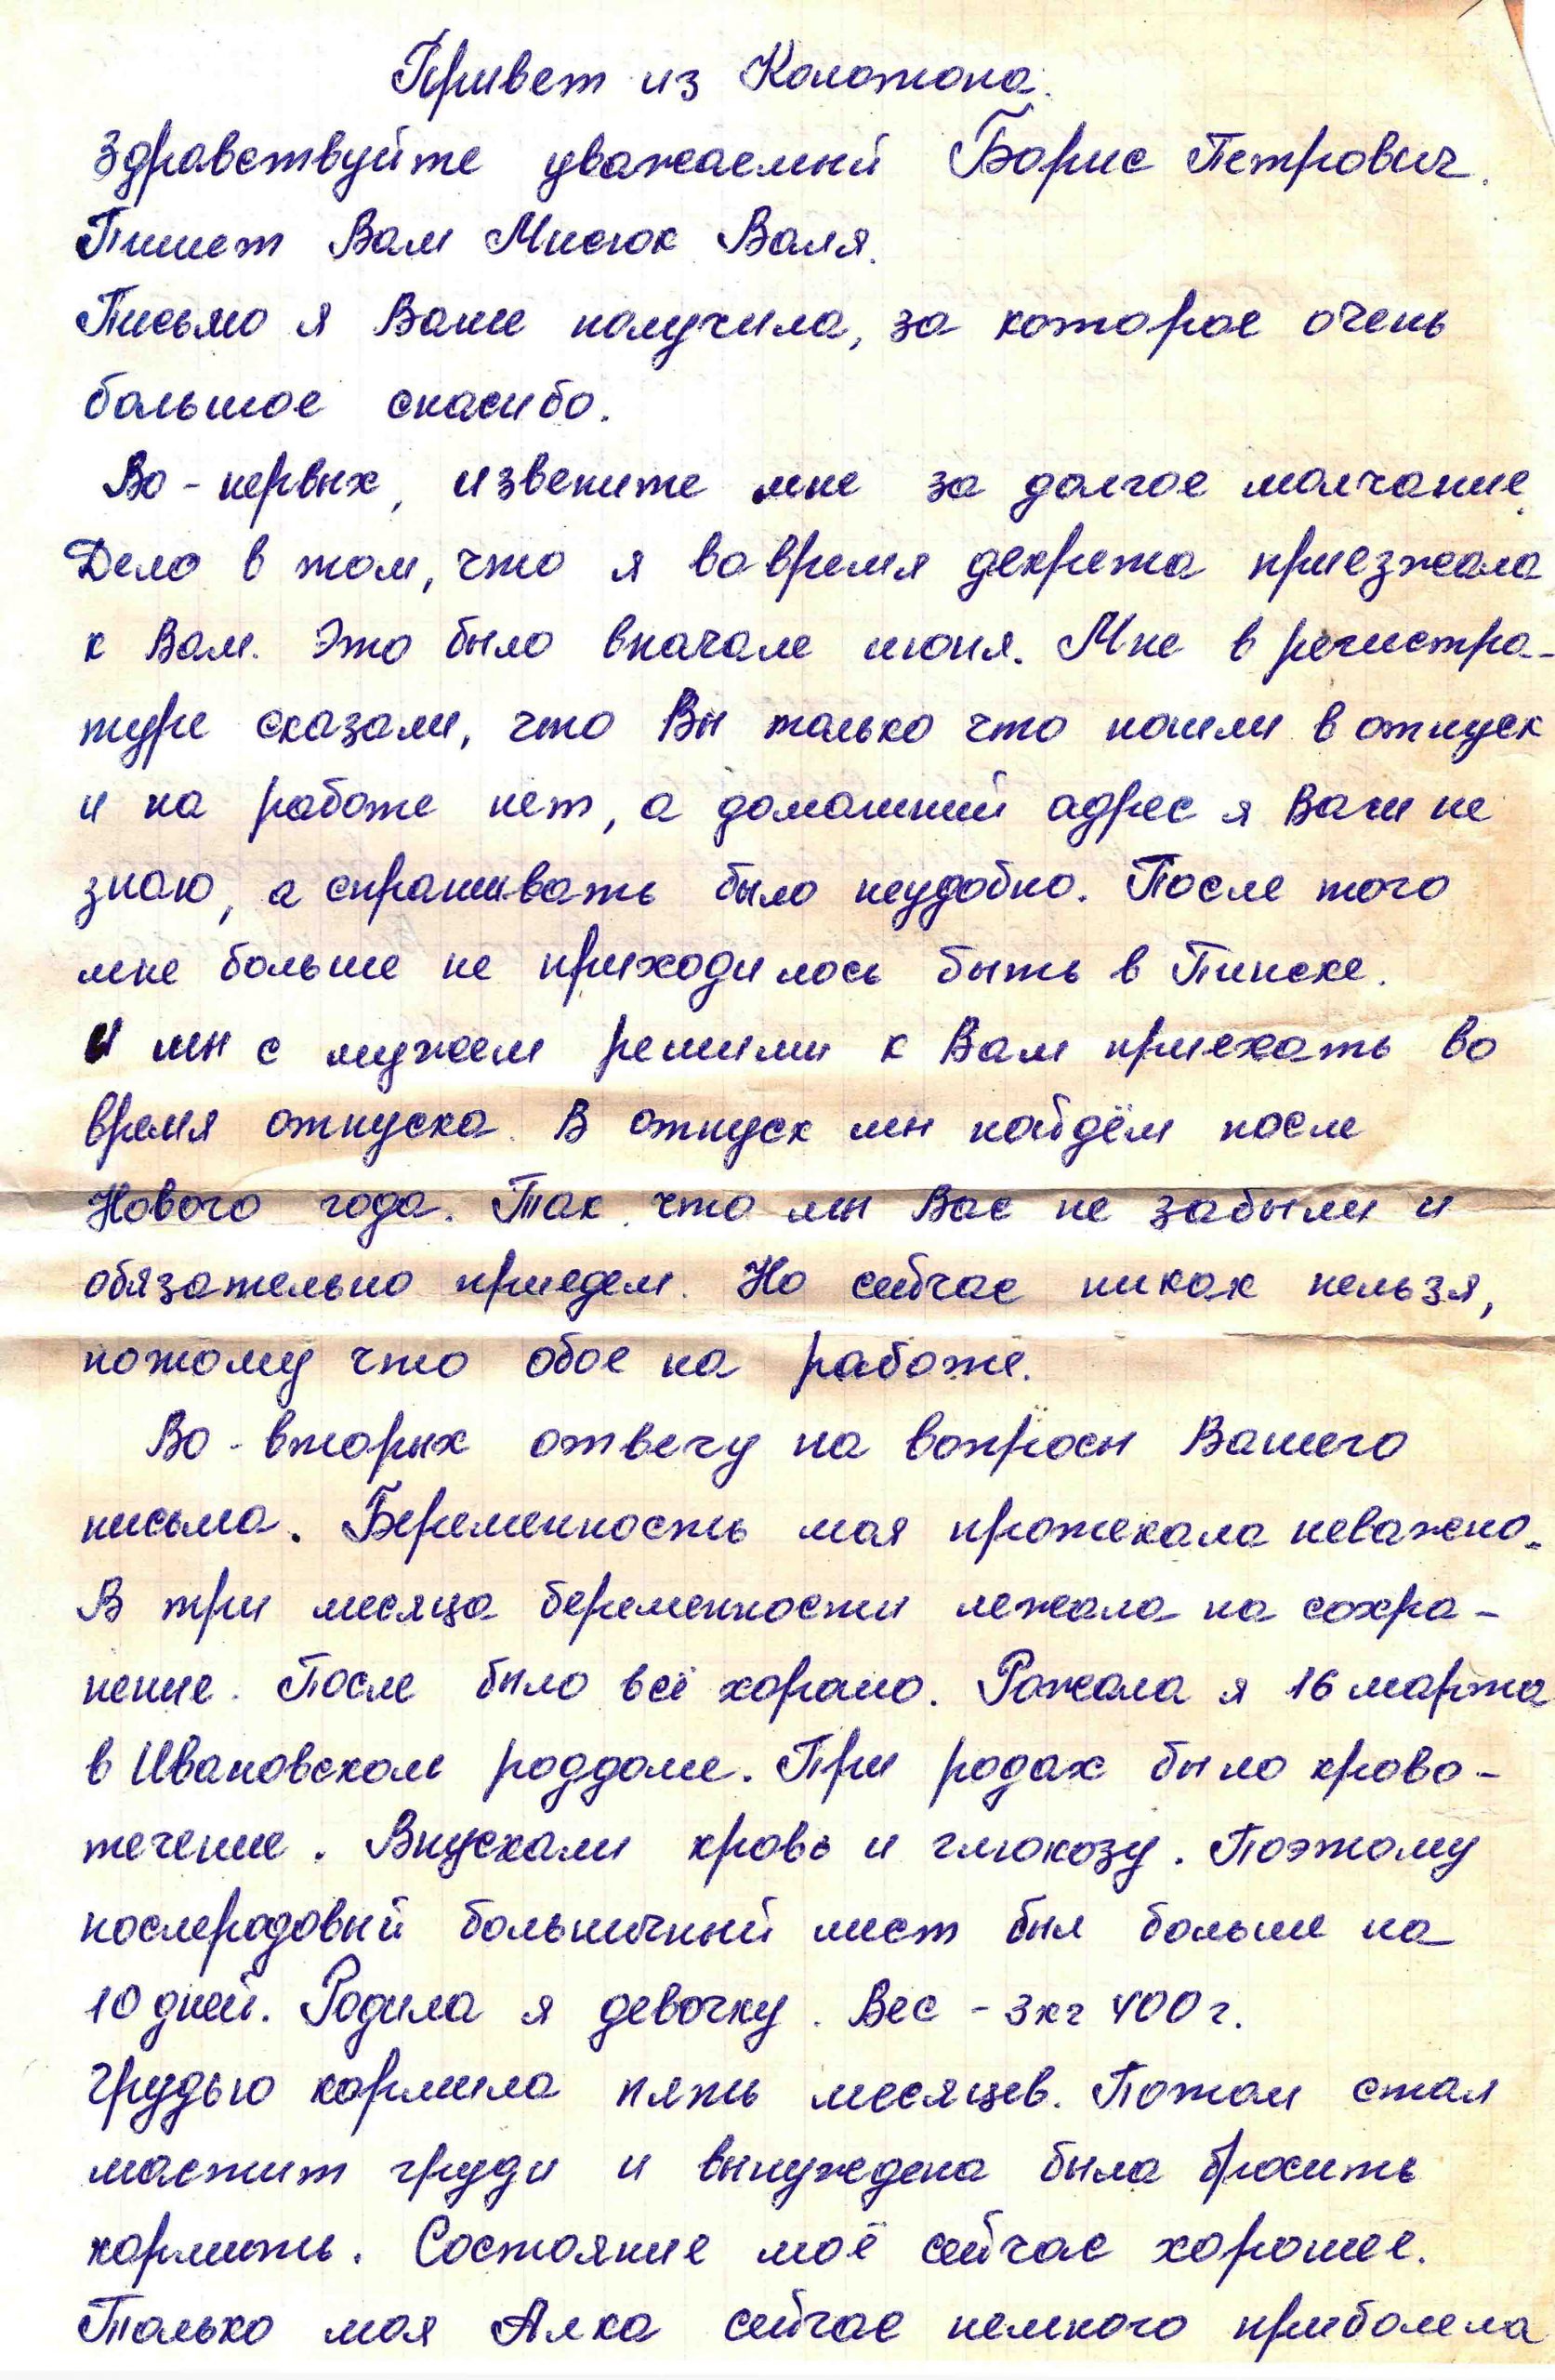 Привет из Колотона.
Здравствуйте уважаемый Борис Петрович.
Пишет Вам Мисюк Валя.
Письмо я Ваше получила, за которое очень
большое спасибо.
Во-первых, извените мне за долгое молчание.
Дело в том, что я во время декрета приезжала
к Вам. Это было вначале июня. Мне в регистра-
туре сказали, что Вы только что пошли в отпуск
и на работе нет, а домашний адрес я Ваш не
знаю, а спрашивать было неудобно. После того
мне больше не приходилось быть в Пинске.
И мы с мужем решили к Вам приехать во
время отпуска. В отпуск мы пойдём после
Нового года. Так что мы Вас не забыли и
обязательно приедем. Но сейчас никак нельзя,
потому что обое на работе.
Во-вторых отвечу на вопросы Вашего
письма. Беременность моя протекала неважно.
В три месяца беременности лежала на сохра-
нение. После было всё хорошо. Рожала я 16 марта
в Ивановском роддоме. При родах было крово-
течение. Впускали кровь и глюкозу. Поэтому
послеродовый больничный лист был больше на
10 дней. Родила я девочку. Вес - 3кг 400г.
Грудью кормила пять месяцев. Потом стал
мастит груди и вынуждена была бросить
кормить. Состояние моё сейчас хорошее.
Только моя Алка сейчас немного приболела